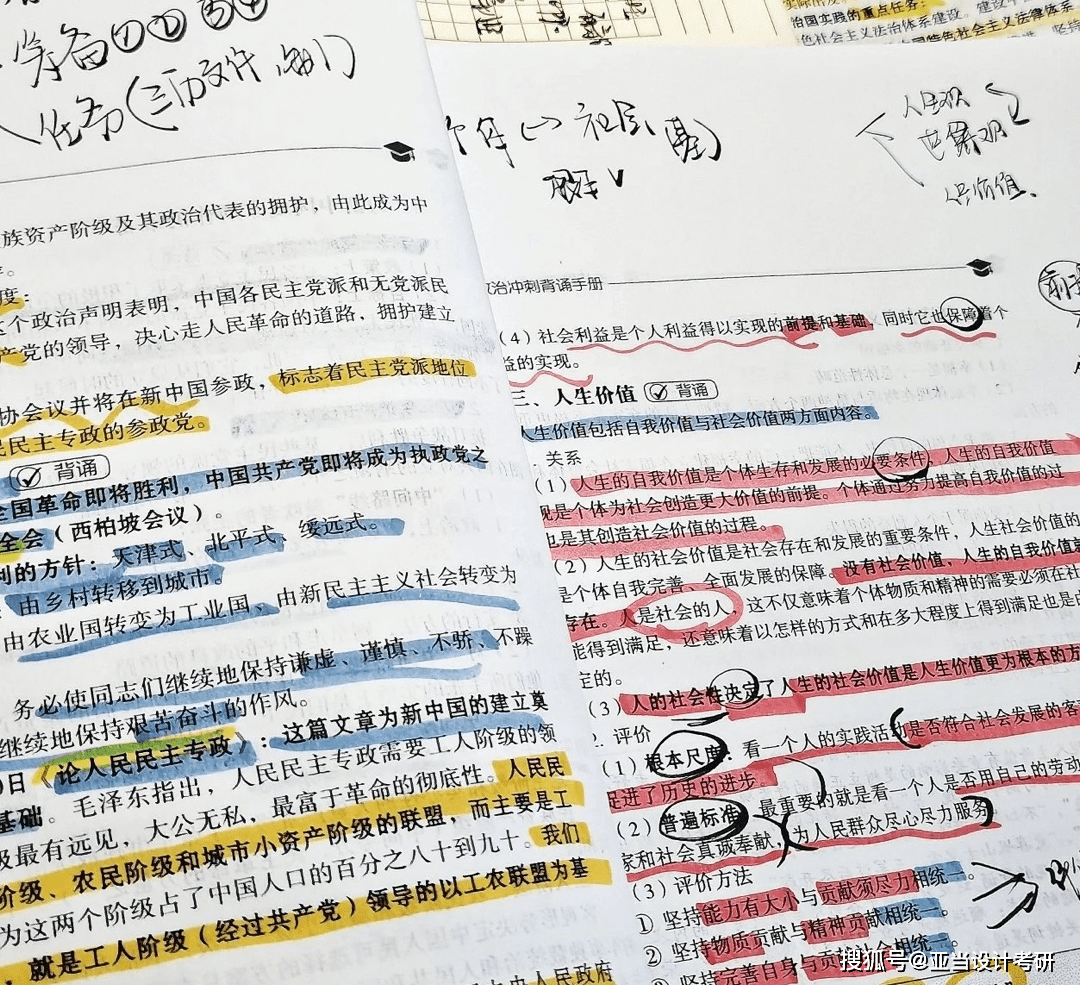 筹备
任务(三历文件,
族资产阶级及其政治代表的拥护,由此成为中
度:
个政治声明表明,中国各民主党派和无党派民
决心走人民革命的道路,拥护建立
产党的领导,
协会议并将在新中国参政,标志着民主党派地位
民民主专政的参政党。
背诵
全国革命即将胜利,中国共产党即将成为执政党之
全会(西柏坡会议)。
利的方针:天津式、北平式、绥远式。
由乡村转移到城市。
由农业国转变为工业国、由新民主主义社会转变为
务必使同志们继续地保持谦虚、谨慎、不骄、不躁
继续地保持艰苦奋斗的作风。
日《论人民民主专政》:这篇文章为新中国的建立奠
基础。毛泽东指出,人民民主专政需要工人阶级的领
级最有远见,大公无私,最富于革命的彻底性。人民民
阶级、农民阶级和城市小资产阶级的联盟,而主要是工
为这两个阶级占了中国人口的百分之八十到九十。我们
就是工人阶级(经过共产党)领导的以工农联盟为基
中央人民政府
治国实践的重点任务:
色社会主义法治体系建设。
特色社会主义法律体系
社会
人生观
世界观
价值
政治冲刺背诵手册
(4)社会利益是个人利益得以实现的前提和基础,同时它也保障着个
益的实现。
三、人生价值 背诵
人生价值包括自我价值与社会价值两方面内容。
关系
(1)人生的自我价值是个体生存和发展的必要条件,人生的自我价值
现是个体为社会创造更大价值的前提。个体通过努力提高自我价值的过
也是其创造社会价值的过程。
(2)人生的社会价值是社会存在和发展的重要条件,人生社会价值的
是个体自我完善、全面发展的保障。没有社会价值,人生的自我价值就
存在。人是社会的人,这不仅意味着个体物质和精神的需要必须在社
能得到满足,还意味着以怎样的方式和在多大程度上得到满足也是由
定的。
(3)人的社会性决定了人生的社会价值是人生价值更为根本的方
2. 评价
(1)根本尺度:看一个人的实践活动是否符合社会发展的客
促进了历史的进步
(2)普遍标准:最重要的就是看一个人是否用自己的劳动
家和社会真诚奉献,为人民群众尽心尽力服务
(3)评价方法
① 坚持能力有大小与贡献须尽力相统一。
② 坚持物质贡献与精神贡献相统一。
坚持完善自身与贡献社会相统一。
搜狐号@亚当设计考研